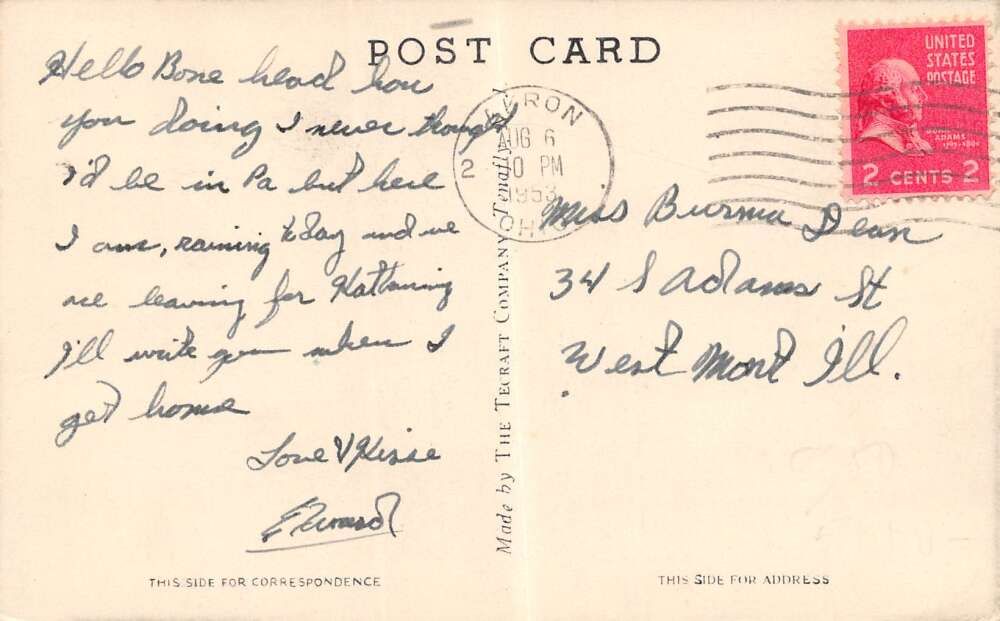 POST CARD
Hello Bone head how
you doing I never thought
I'd be in Pa but here
I am, raining today and we
are leaving for Kattaning
I'll write you when I
get home
Love & Kisse
Edward
THIS SIDE FOR CORRESPONDENCE
Made by THE TECRAFT COMPANY Tenafly
AKRON
AUG 6
PM
2
1953
OHIO
UNITED
STATES
POSTAGE
ADAMS
2 CENTS 2
Miss Burma Dean
34 S Adams St
West Mont Ill.
THIS SIDE FOR ADDRESS